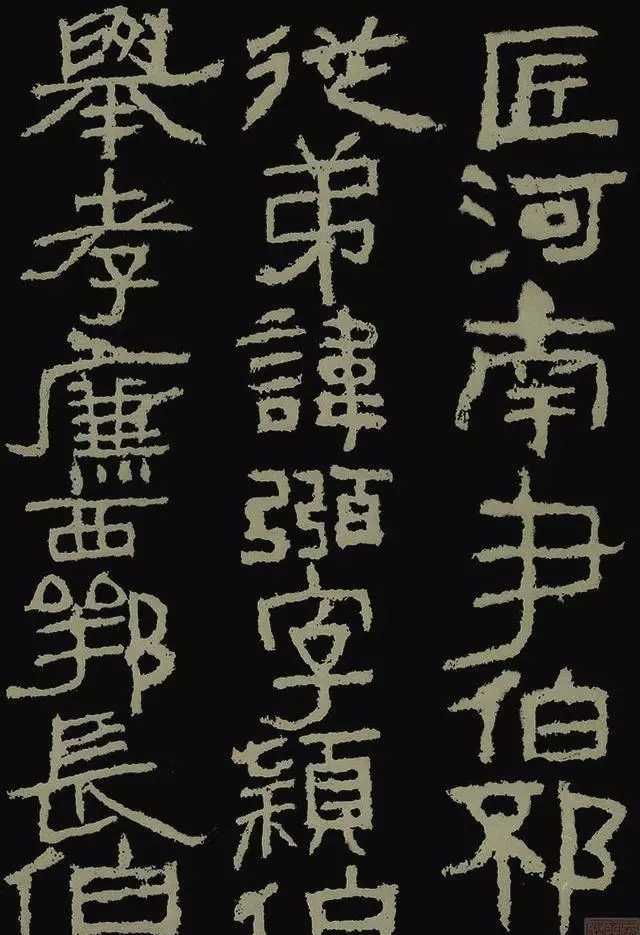 匠河南尹伯邳
從弟諱弼字穎伯
舉孝廉西鄂長伯